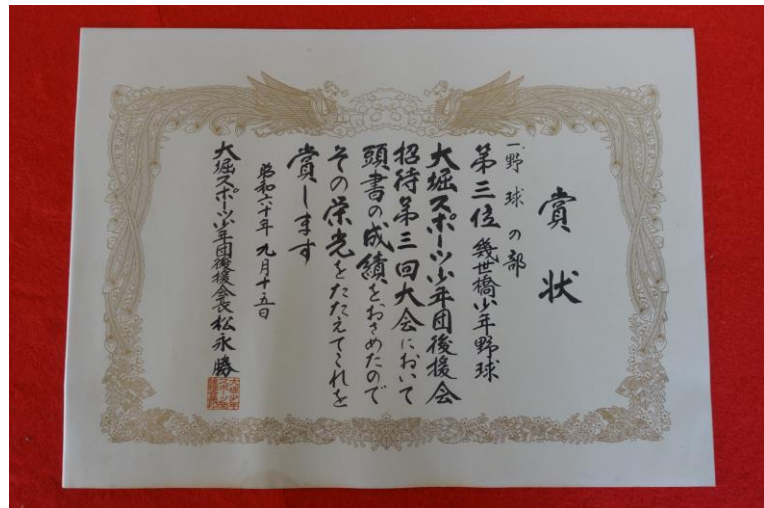 賞状
一、野球の部
第三位 幾世橋少年野球
大堀スポーツ少年団後援会
招待第三回大会において
頭書の成績をおさめたので
その栄光をたたえてこれを
賞します
昭和六十年九月十五日
大堀スポーツ少年団後援会長 松永勝